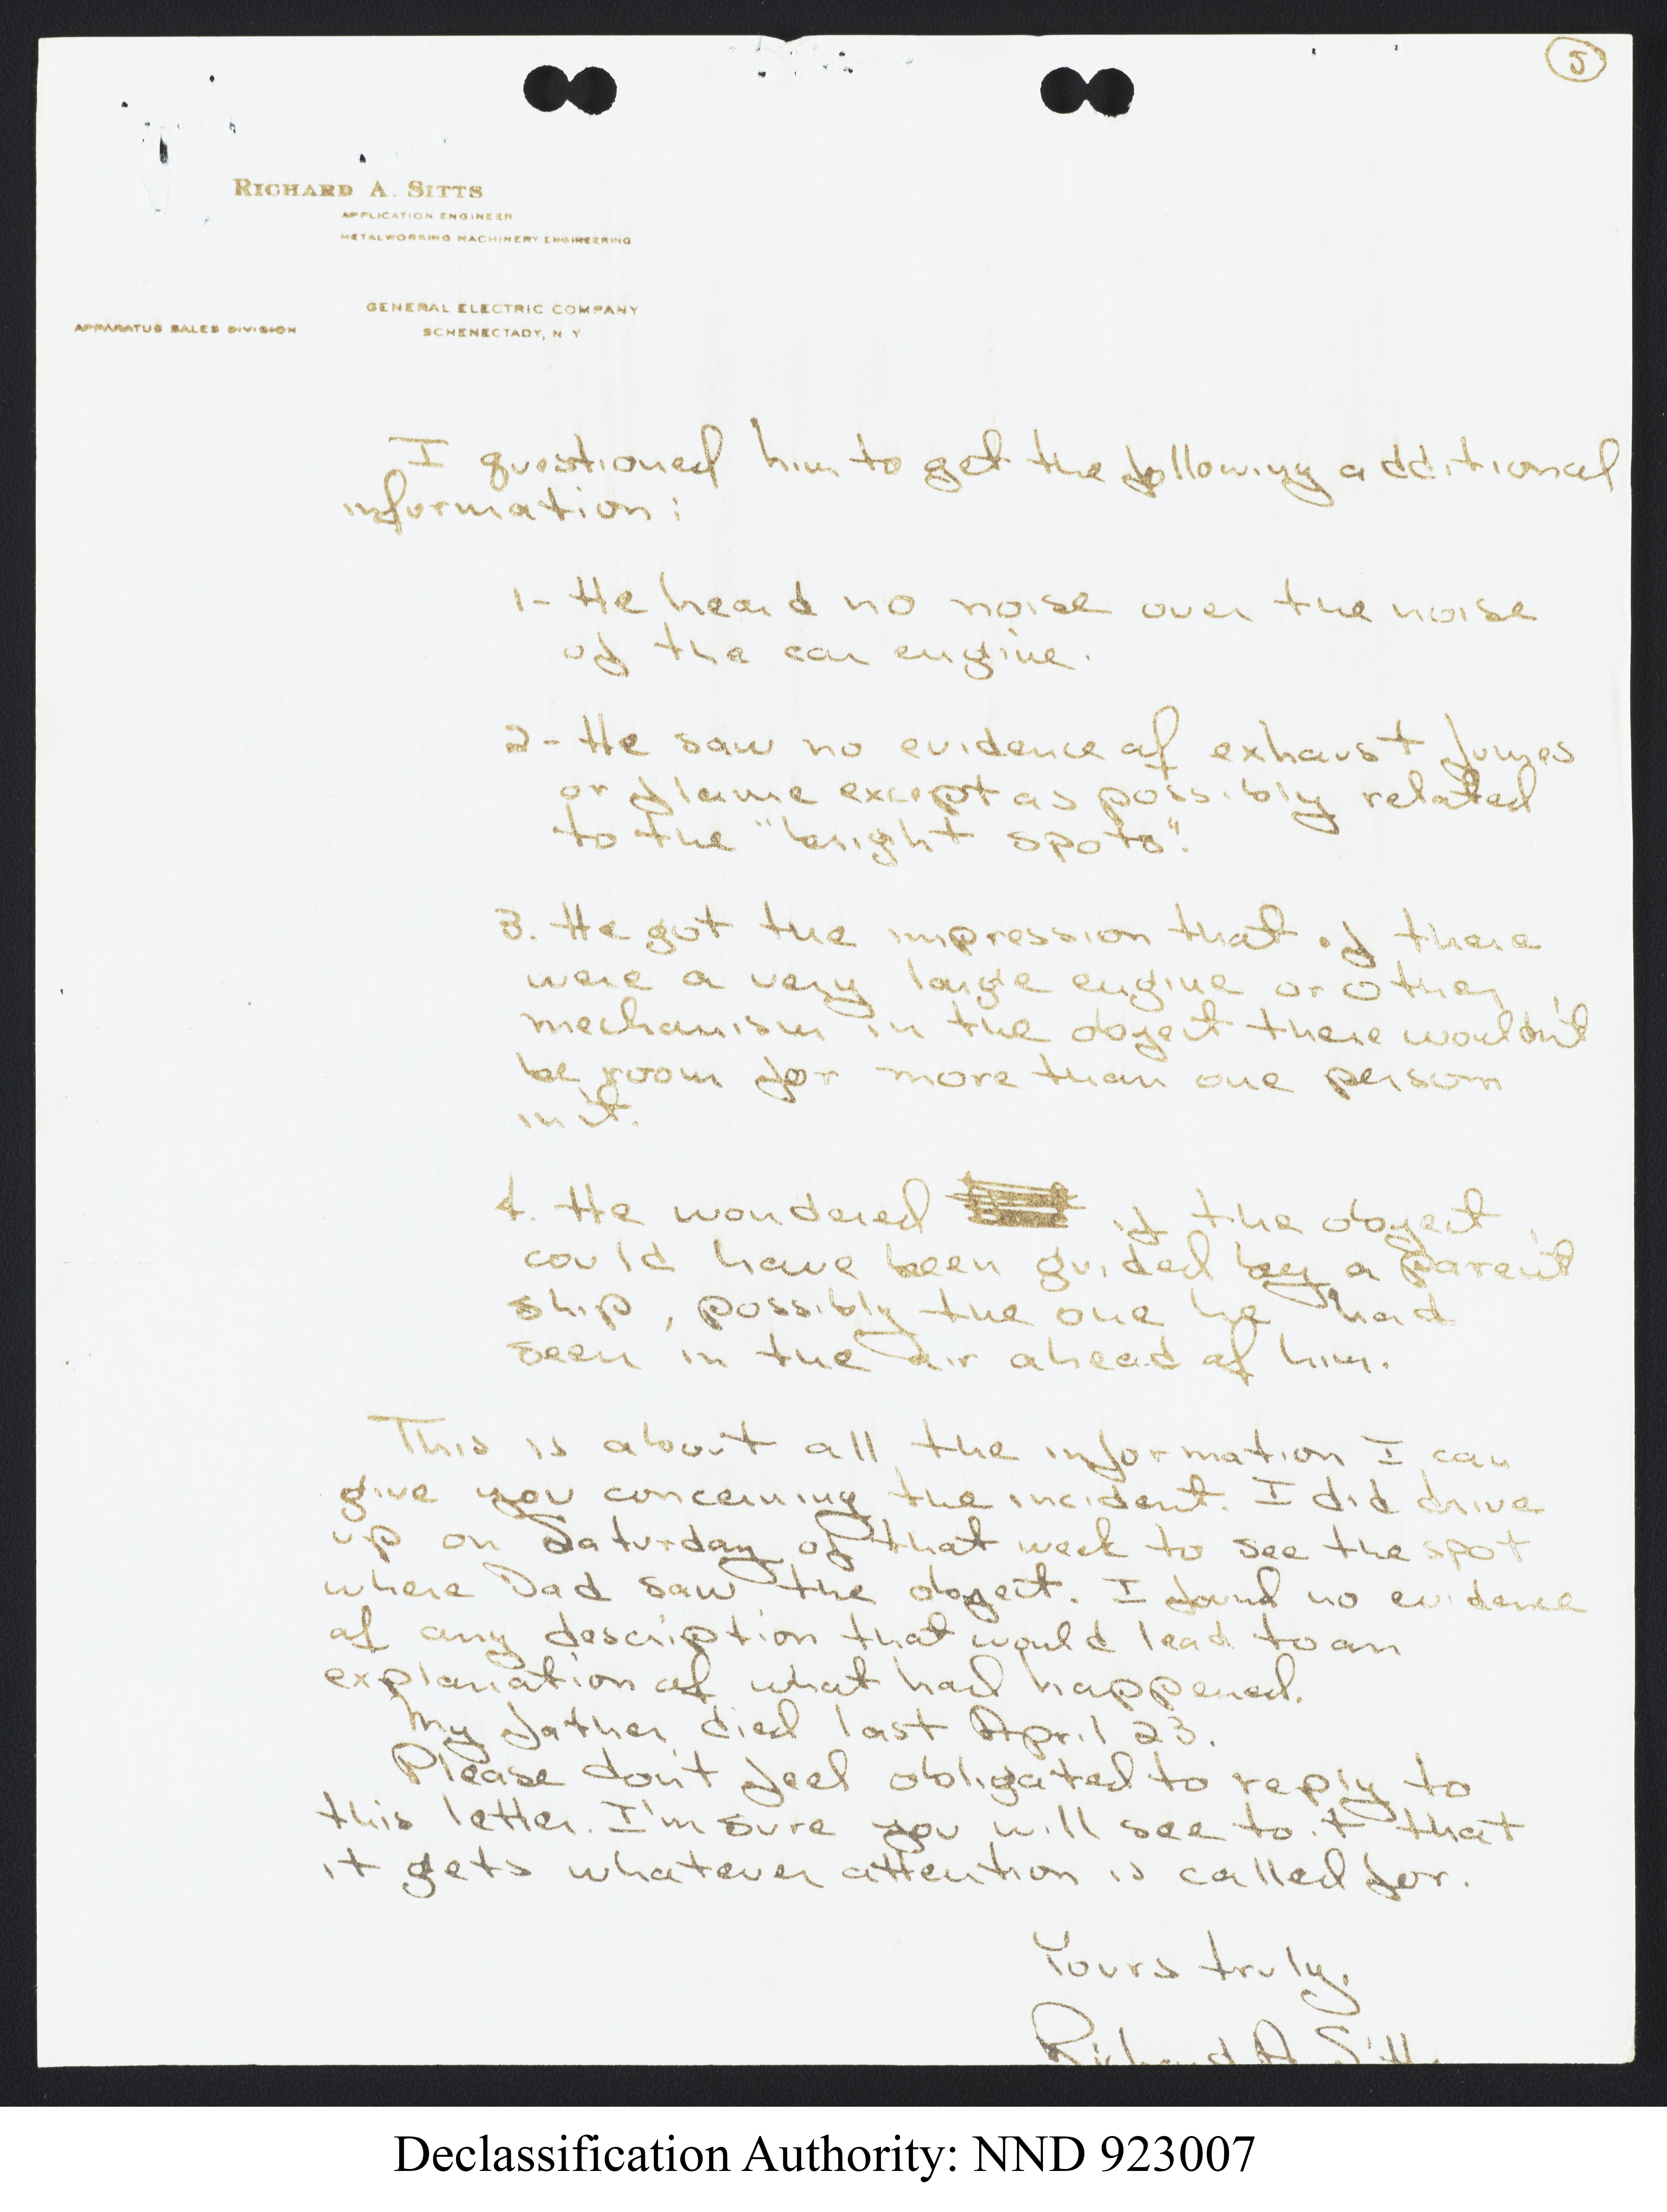 5
RICHARD A. SITTS
APPLICATION ENGINEER
METALWORKING MACHINERY ENGINEERING
GENERAL ELECTRIC COMPANY
APPARATUS SALES DIVISION
SCHENECTADY, N. Y
I questioned him to get the following additional
information:
1- He heard no noise over the noise
of the car engine.
2- He saw no evidence of exhaust fumes
or flame except as possibly related
to the "bright spots".
3. He got the impression that if there
were a very large engine or other
mechanism in the object there wouldn't
be room for more than one person
in it.
4. He wondered if the object
could have been guided by a parent
ship, possibly the one he had
seen in the air ahead of him.
This is about all the information I can
give you concerning the incident. I did drive
up on Saturday of that week to see the spot
where Dad saw the object. I found no evidence
of any description that would lead to an
explanation of what had happened.
My father died last April 23.
Please don't feel obligated to reply to
this letter. I'm sure you will see to it that
it gets whatever attention is called for.
Yours truly,
Richard A. Sitts
Declassification Authority: NND 923007